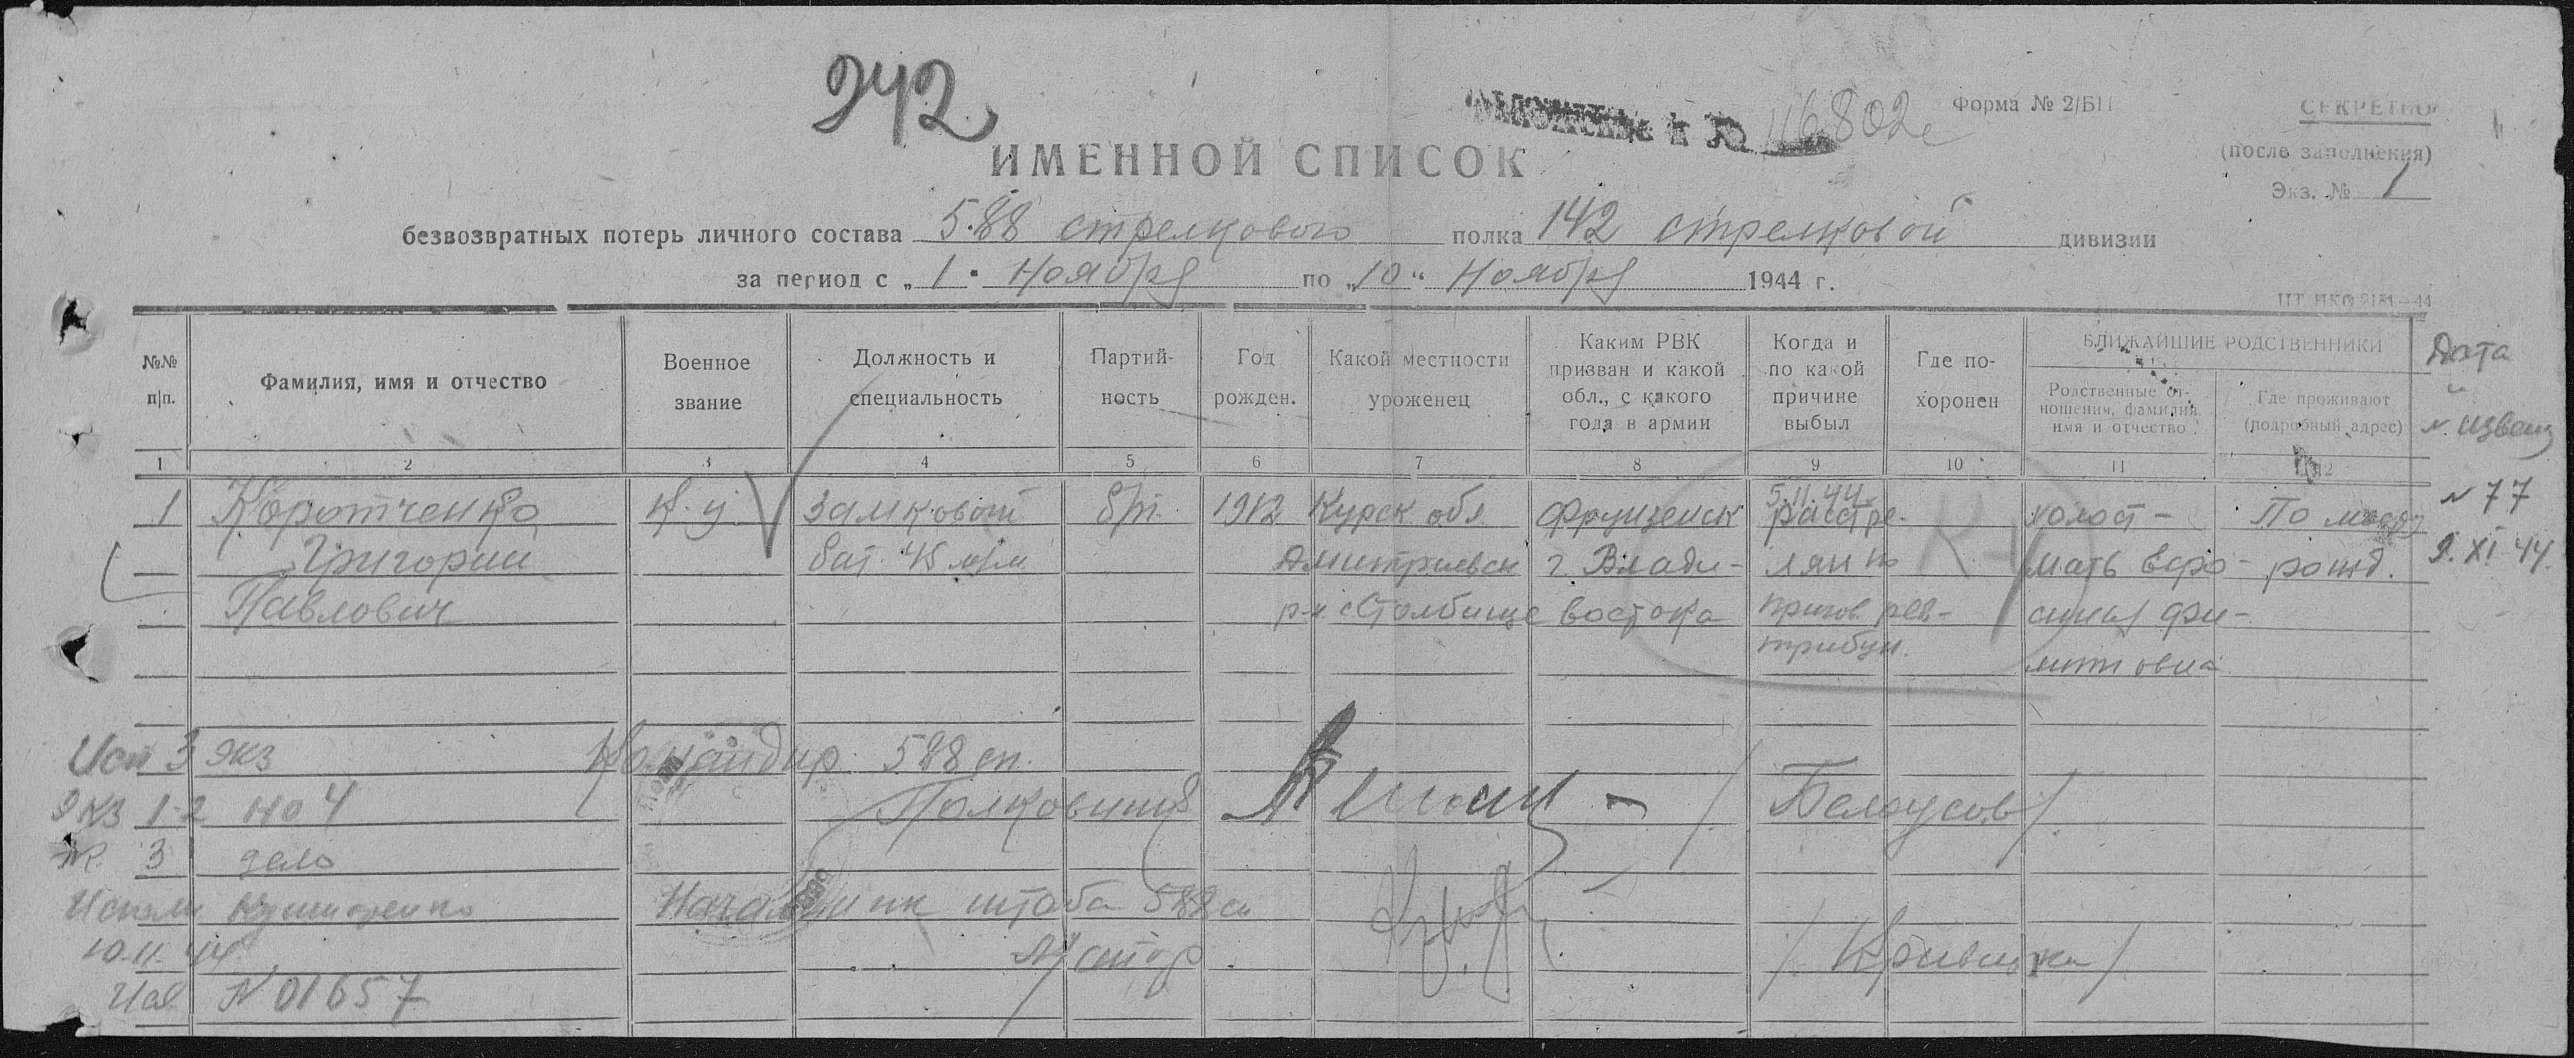 242
Форма № 2/БП
СЕКРЕТНО
46802с
(после заполнения)
ИМЕННОЙ СПИСОК
Экз. № 1
безвозвратных потерь личного состава 588 стрелкового полка 142 стрелковой дивизии
за период с „1" Ноября по „10" Ноября 1944 г.
№№ п/п. Фамилия, имя и отчество Военное звание Должность и специальность Партий-ность Год рожден. Какой местности уроженец Каким РВК призван и какой обл., с какого года в армии Когда и по какой причине выбыл Где по-хоронен БЛИЖАЙШИЕ РОДСТВЕННИКИ Дата и № извещ
Родственные от-ношения, фамилия, имя и отчество Где проживают (подробный адрес)
1 2 3 4 5 6 7 8 9 10 11 12
1 Коротченко К-ц Замковой б/п 1912 Курск обл Фрунзенск 5.11.44 расстре- холост - По месту № 77
Григорий бат. 45 м/м Дмитриевск г. Влади- лян по мать Евро- рожд. 9.XI 44.
Павлович р-н с Столбище востока пригов. рев- синья Фи-
трибун.
Исп 3 экз Командир 588 сп.
Экз 1-2 на 4 Полковник /Белоусов/
3 дело
Исполн Начальник штаба 588 сп
10.11.44
Майор
Исх N 01657